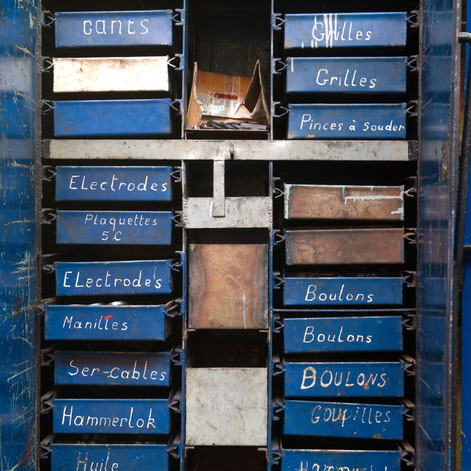 Gants
Electrodes
Plaquettes
5C
Electrodes
Manilles
Ser-cables
Hammerlok
Huile
Grilles
Grilles
Pinces à souder
Boulons
Boulons
BOULONS
GOUPILLES